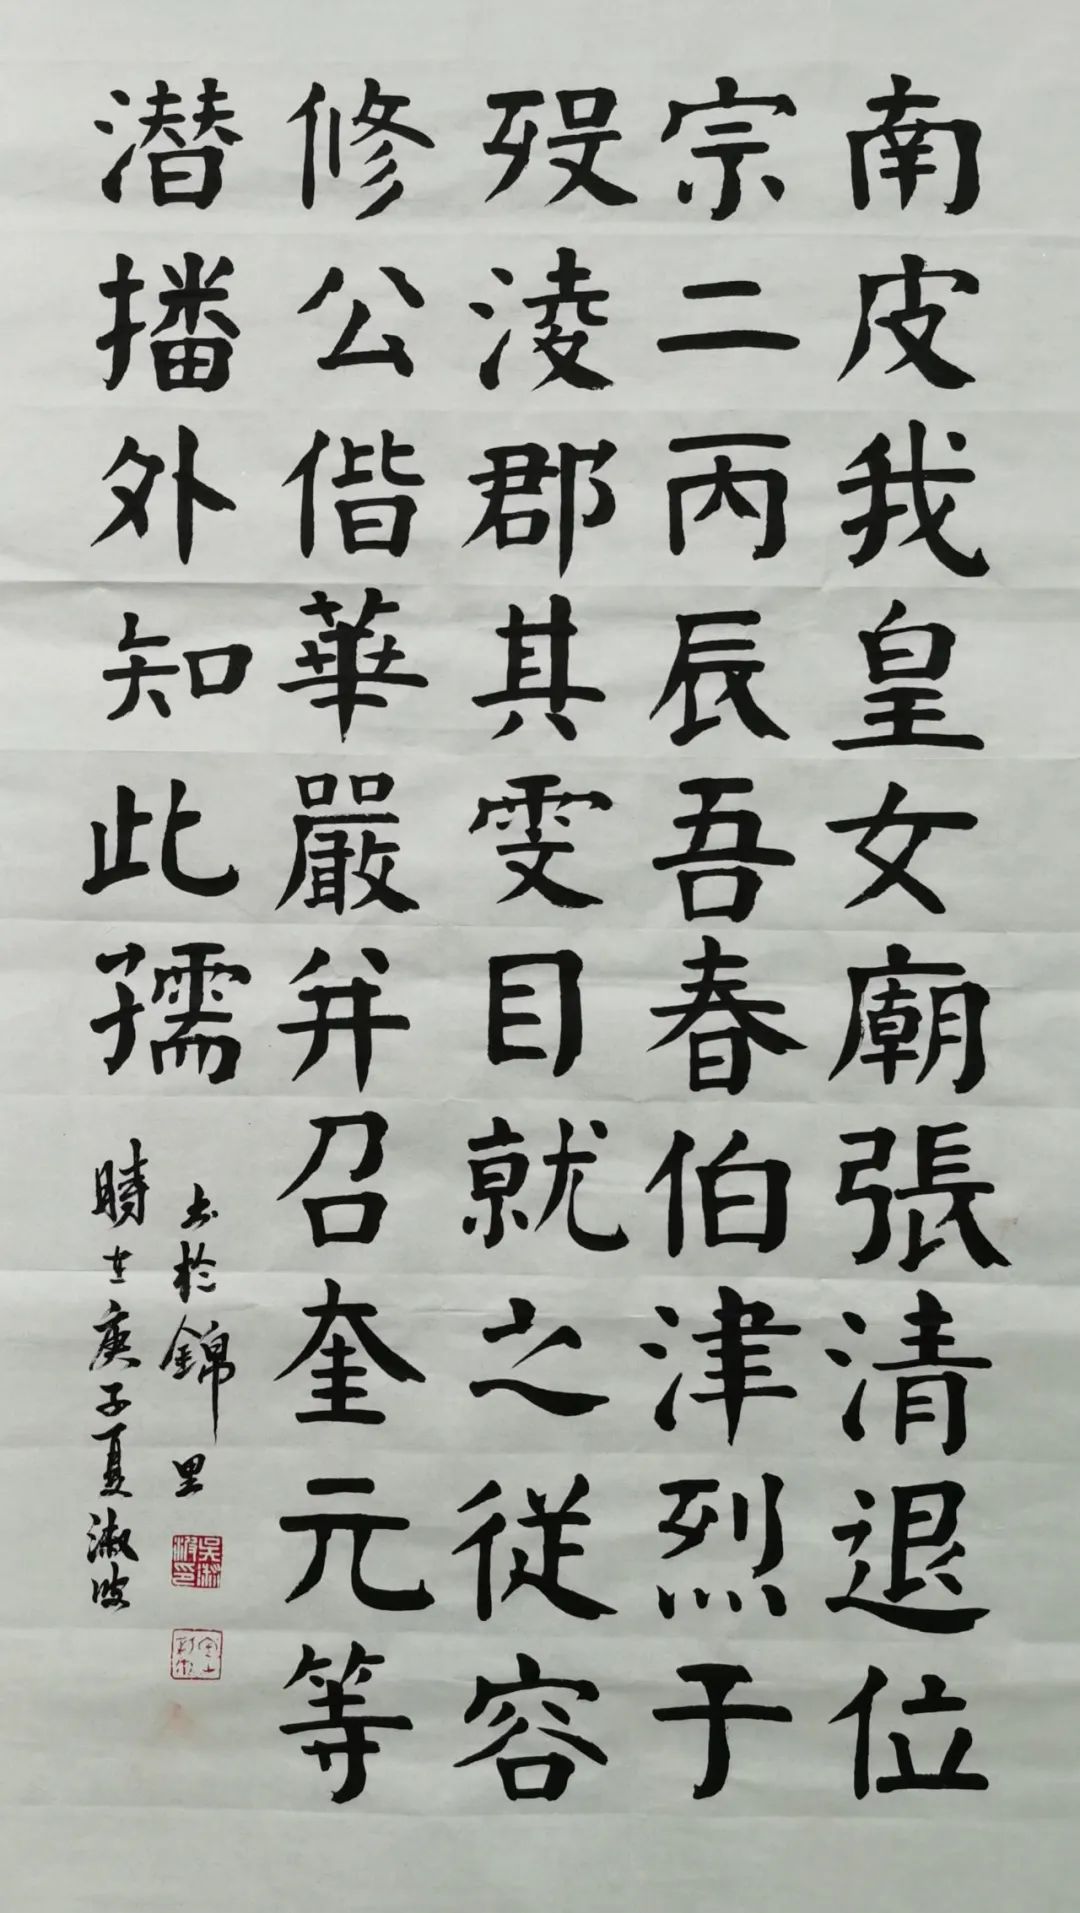 南皮我皇女廟張清退位
宗二丙辰吾春伯津烈于
歿淩郡其雯目就之従容
修公偕華嚴并召奎元等
潜播外知此孺
時在庚子夏淑波
書於錦里
吳淑波印